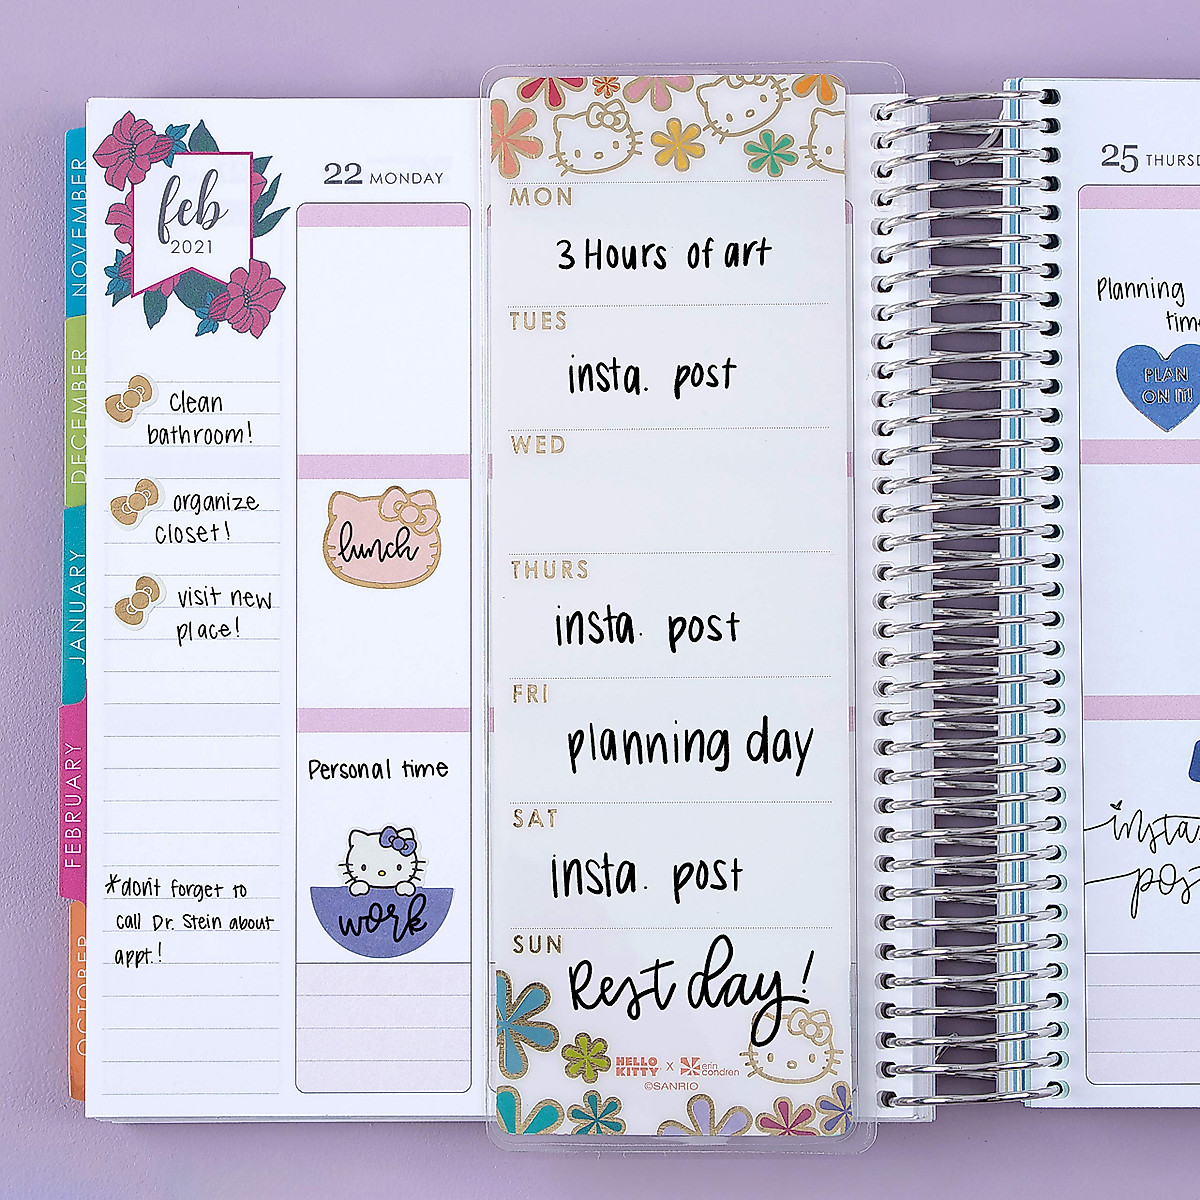 NOVEMBER
DECEMBER
JANUARY
FEBRUARY
OCTOBER
feb
2021
clean
bathroom!
organize
closet!
visit new
place!
*don't forget to
call Dr. Stein about
appt.!
22 MONDAY
lunch
Personal time
work
MON
3 Hours of art
TUES
insta. post
WED
THURS
insta. post
FRI
planning day
SAT
insta. post
SUN
Rest day!
HELLO KITTY x erin condren
©SANRIO
25 THURSD
Planning
time
PLAN
ON IT!
insta
post